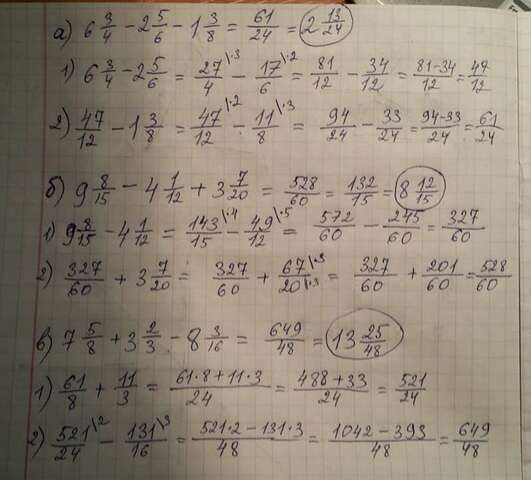 а) 6 3/4 - 2 5/6 - 1 3/8 = 61/24 = 2 13/24
1) 6 3/4 - 2 5/6 = 27/4 \·3 - 17/6 \·2 = 81/12 - 34/12 = 81-34/12 = 47/12
2) 47/12 - 1 3/8 = 47/12 \·2 - 11/8 \·3 = 94/24 - 33/24 = 94-33/24 = 61/24
б) 9 8/15 - 4 1/12 + 3 7/20 = 528/60 = 132/15 = 8 12/15
1) 9 8/15 - 4 1/12 = 143/15 \·4 - 49/12 \·5 = 572/60 - 245/60 = 327/60
2) 327/60 + 3 7/20 = 327/60 + 67/20 \·3 \·3 = 327/60 + 201/60 = 528/60
в) 7 5/8 + 3 2/3 - 8 3/16 = 649/48 = 13 25/48
1) 61/8 + 11/3 = 61·8+11·3/24 = 488+33/24 = 521/24
2) 521/24 \2 - 131/16 \3 = 521·2-131·3/48 = 1042-393/48 = 649/48